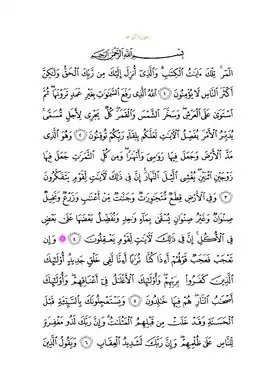 بِسْمِ ٱللَّهِ ٱلرَّحْمَٰنِ ٱلرَّحِيمِ
الٓمٓر تِلْكَ ءَايَٰتُ ٱلْكِتَٰبِ وَٱلَّذِىٓ أُنزِلَ إِلَيْكَ مِن رَّبِّكَ ٱلْحَقُّ وَلَٰكِنَّ
أَكْثَرَ ٱلنَّاسِ لَا يُؤْمِنُونَ ١ ٱللَّهُ ٱلَّذِى رَفَعَ ٱلسَّمَٰوَٰتِ بِغَيْرِ عَمَدٍ تَرَوْنَهَا ثُمَّ
ٱسْتَوَىٰ عَلَى ٱلْعَرْشِ وَسَخَّرَ ٱلشَّمْسَ وَٱلْقَمَرَ كُلٌّ يَجْرِى لِأَجَلٍ مُّسَمًّى
يُدَبِّرُ ٱلْأَمْرَ يُفَصِّلُ ٱلْءَايَٰتِ لَعَلَّكُم بِلِقَآءِ رَبِّكُمْ تُوقِنُونَ ٢ وَهُوَ ٱلَّذِى
مَدَّ ٱلْأَرْضَ وَجَعَلَ فِيهَا رَوَٰسِىَ وَأَنْهَٰرًا وَمِن كُلِّ ٱلثَّمَرَٰتِ جَعَلَ فِيهَا
زَوْجَيْنِ ٱثْنَيْنِ يُغْشِى ٱلَّيْلَ ٱلنَّهَارَ إِنَّ فِى ذَٰلِكَ لَءَايَٰتٍ لِّقَوْمٍ يَتَفَكَّرُونَ
٣ وَفِى ٱلْأَرْضِ قِطَعٌ مُّتَجَٰوِرَٰتٌ وَجَنَّٰتٌ مِّنْ أَعْنَٰبٍ وَزَرْعٌ وَنَخِيلٌ
صِنْوَانٌ وَغَيْرُ صِنْوَانٍ يُسْقَىٰ بِمَآءٍ وَٰحِدٍ وَنُفَضِّلُ بَعْضَهَا عَلَىٰ بَعْضٍ
فِى ٱلْأُكُلِ إِنَّ فِى ذَٰلِكَ لَءَايَٰتٍ لِّقَوْمٍ يَعْقِلُونَ ٤ وَإِن
تَعْجَبْ فَعَجَبٌ قَوْلُهُمْ أَءِذَا كُنَّا تُرَٰبًا أَءِنَّا لَفِى خَلْقٍ جَدِيدٍ أُو۟لَٰٓئِكَ
ٱلَّذِينَ كَفَرُوا۟ بِرَبِّهِمْ وَأُو۟لَٰٓئِكَ ٱلْأَغْلَٰلُ فِىٓ أَعْنَاقِهِمْ وَأُو۟لَٰٓئِكَ
أَصْحَٰبُ ٱلنَّارِ هُمْ فِيهَا خَٰلِدُونَ ٥ وَيَسْتَعْجِلُونَكَ بِٱلسَّيِّئَةِ قَبْلَ
ٱلْحَسَنَةِ وَقَدْ خَلَتْ مِن قَبْلِهِمُ ٱلْمَثُلَٰتُ وَإِنَّ رَبَّكَ لَذُو مَغْفِرَةٍ
لِّلنَّاسِ عَلَىٰ ظُلْمِهِمْ وَإِنَّ رَبَّكَ لَشَدِيدُ ٱلْعِقَابِ ٦ وَيَقُولُ ٱلَّذِينَ